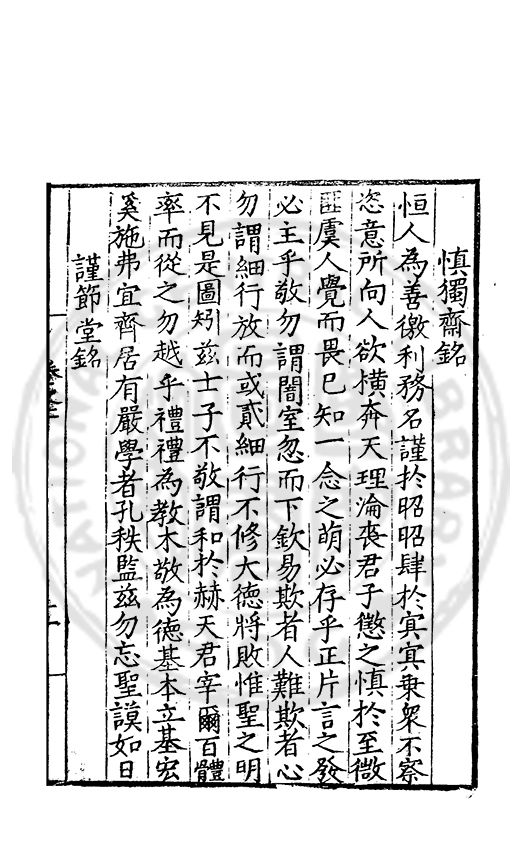 慎獨齋銘
恒人為善徼利務名謹於昭昭肆於㝠㝠乗衆不察
恣意所向人欲横奔天理淪喪君子懲之慎於至微
匪虞人覺而畏已知一念之萌必存乎正片言之發
必主乎敬勿謂闇室忽而下欽易欺者人難欺者心
勿謂細行放而或貳細行不修大德將敗惟聖之明
不見是圖矧兹士子不敬謂和於赫天君宰爾百體
率而從之勿越乎禮禮為教木敬為德基本立基宏
奚施弗宜齊居有嚴學者孔秩監兹勿忘聖謨如日
謹節堂銘